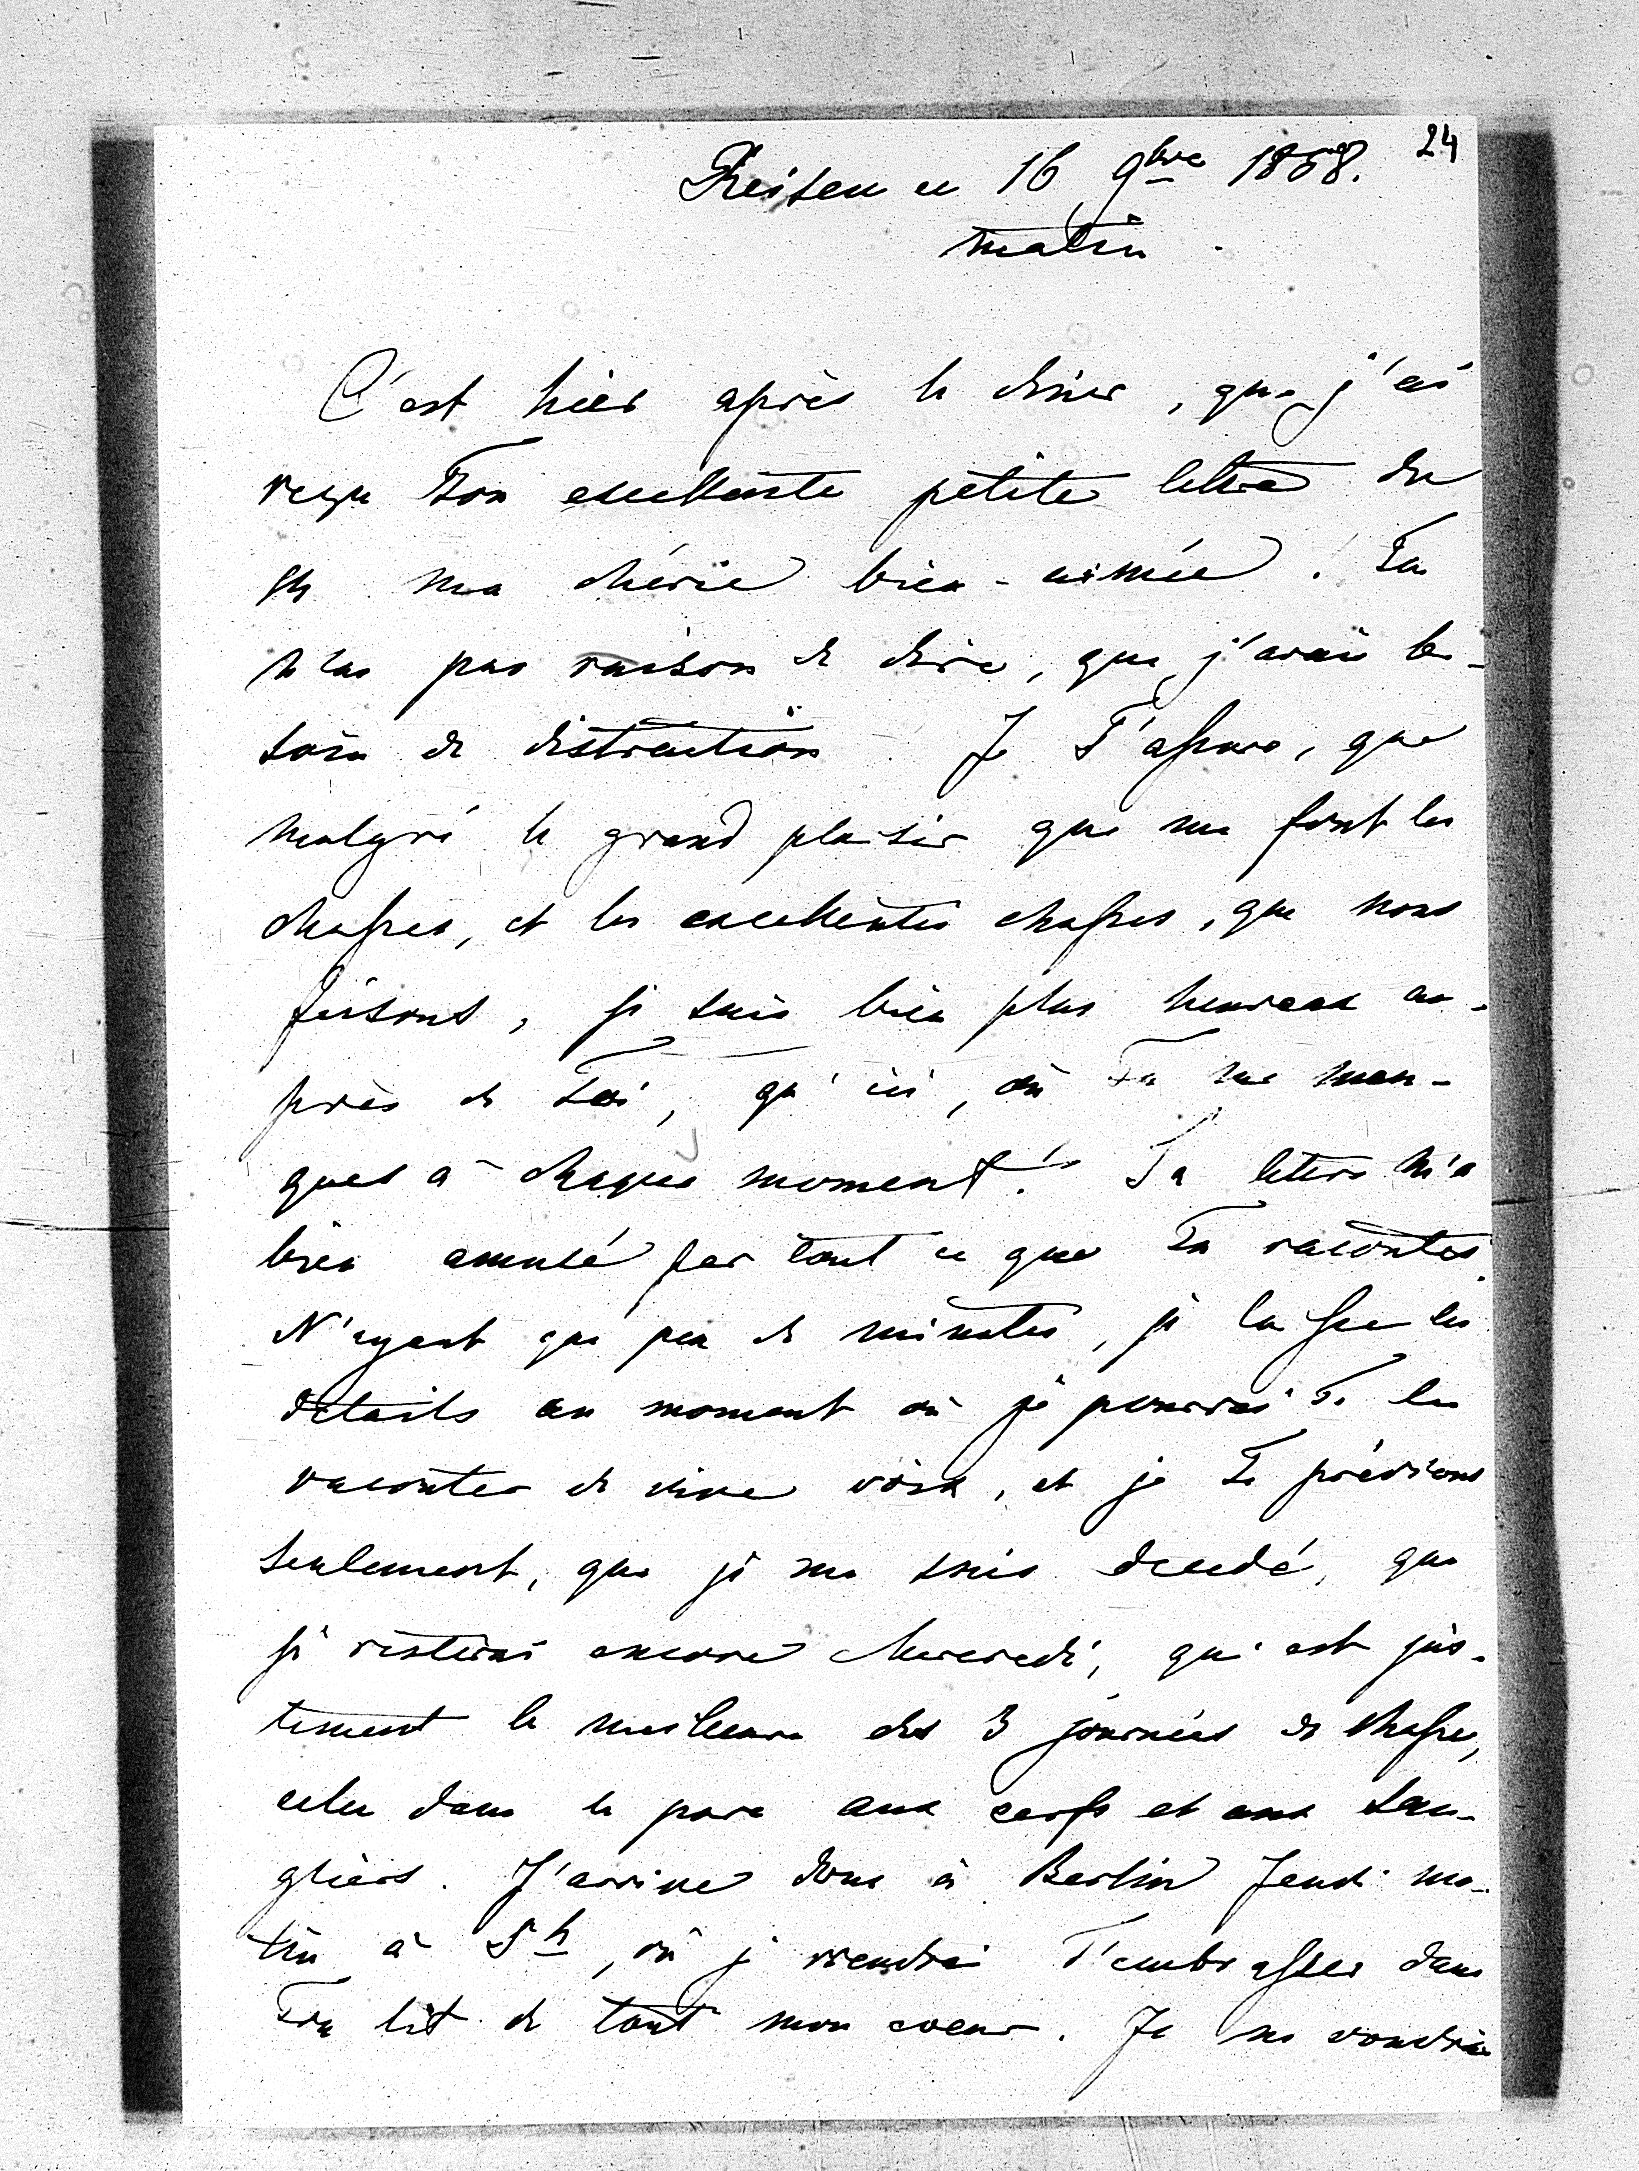 24
Reisen ce 16 9bre 1868.
matin.
C'est hier après le diner, que j'ai
reçu Ton excellente petite lettre du
ma chérie bien-aimée. Tu
n'as pas raison de dire, que j'avais be-
soin de distraction. Je T'assure, que
malgré le grand plaisir que me font les
chasses, et les excellentes chasses, que nous
faisons, je suis bien plus heureux au-
près de Toi, qu'ici, où Tu me man-
ques à chaque moment! Ta lettre m'a
bien amusé par tout ce que Tu racontes.
N'ayant que peu de minutes, je laisse les
details au moment où je pourrai Te les
raconter de vive voix, et je Te préviens
seulement, que je me suis decidé, que
je resterai encore Mercredi, qui est jus-
tement la meilleure des 3 journées de chasse,
celle dans le parc aux cerfs et aux san-
gliers. J'arrive donc à Berlin Jeudi ma-
tin à 5h, où je viendrai T'embrasser dans
Ton lit de tout mon coeur. Je ne voudrai